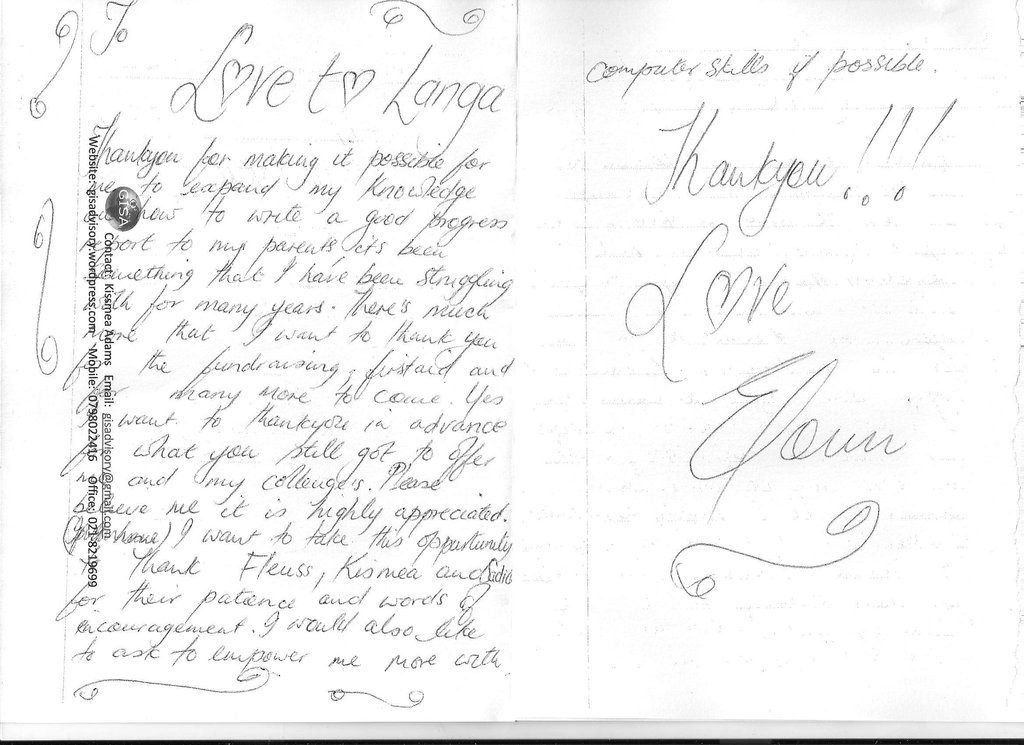 To
Love to Langa
Thankyou for making it possible for
me to expand my Knowledge
how to write a good progress
report to my parents it's been
something that I have been struggling
with for many years. There's much
more that I want to thank you
for the fundraising, firstaid and
for many more to come. Yes
I want to thankyou in advance
for what you still got to offer
me and my colleuge's. Please
believe me it is highly appreciated.
I want to take this opportunity
to thank Fleuss, Kismea and Sadia
for their patience and words of
encouragement. I would also like
to ask to empower me more with
GISA
Contact: Kissmea Adams Email: gisadvisory@gmail.com
Website: gisadvisory.wordpress.com Mobile: 0798022416 Office: 021-8219699
computer skills if possible.
Thankyou!!!
Love